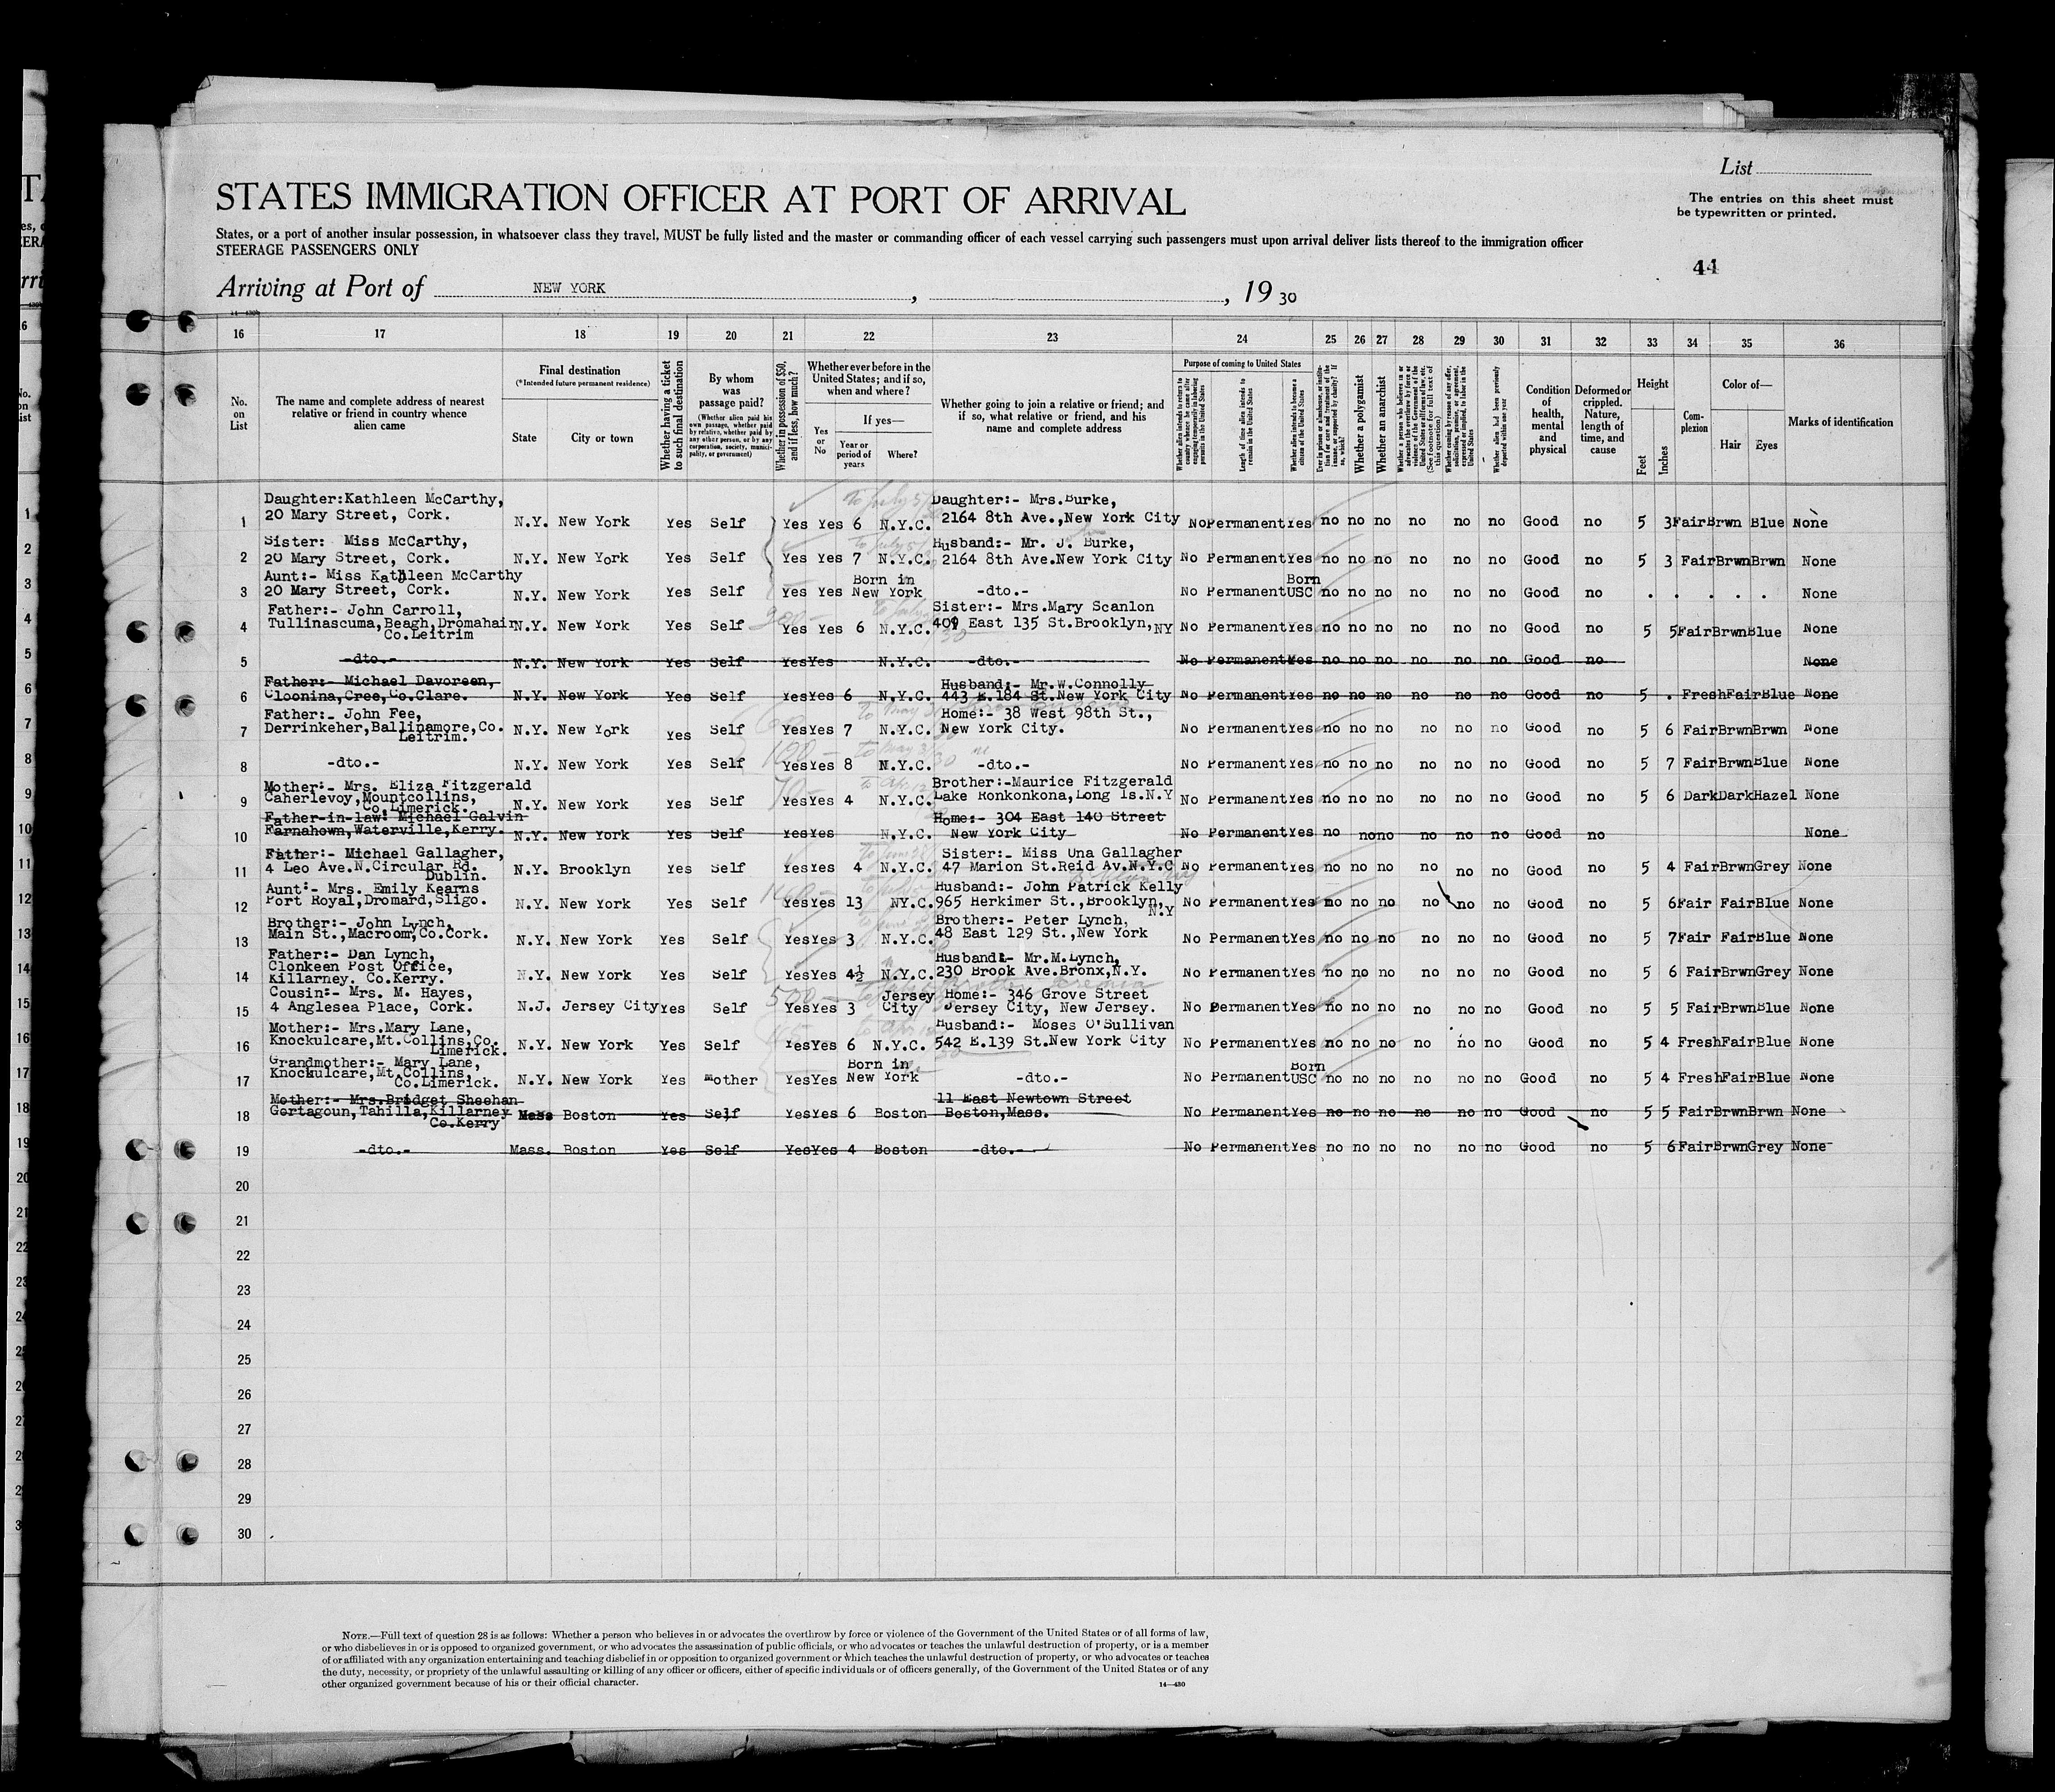 List
STATES IMMIGRATION OFFICER AT PORT OF ARRIVAL
The entries on this sheet must
be typewritten or printed.
States, or a port of another insular possession, in whatsoever class they travel, MUST be fully listed and the master or commanding officer of each vessel carrying such passengers must upon arrival deliver lists thereof to the immigration officer
STEERAGE PASSENGERS ONLY
44
Arriving at Port of NEW YORK , , 19 30
16 17 18 19 20 21 22 23 24 25 26 27 28 29 30 31 32 33 34 35 36
No. on List
The name and complete address of nearest relative or friend in country whence alien came
Final destination
(*Intended future permanent residence)
State
City or town
Whether having a ticket to such final destination
By whom was passage paid?
(Whether alien paid his own passage, whether paid by relative, whether paid by any other person, or by any corporation, society, municipality, or government)
Whether in possession of $50, and if less, how much?
Whether ever before in the United States; and if so, when and where?
Yes or No
If yes—
Year or period of years
Where?
Whether going to join a relative or friend; and if so, what relative or friend, and his name and complete address
Purpose of coming to United States
Whether alien intends to return to country whence he came after engaging temporarily in laboring pursuits in the United States
Length of time alien intends to remain in the United States
Whether alien intends to become a citizen of the United States
Whether a polygamist
Whether an anarchist
Condition of health, mental and physical
Deformed or crippled. Nature, length of time, and cause
Height
Feet
Inches
Complexion
Color of—
Hair
Eyes
Marks of identification
Daughter:Kathleen McCarthy, Daughter:- Mrs.Burke,
1 20 Mary Street, Cork. N.Y. New York Yes Self Yes Yes 6 N.Y.C. 2164 8th Ave.,New York City No Permanent Yes no no no no no no Good no 5 3 Fair Brwn Blue None
Sister: Miss McCarthy, Husband:- Mr. J. Burke,
2 20 Mary Street, Cork. N.Y. New York Yes Self Yes Yes 7 N.Y.C. 2164 8th Ave.New York City No Permanent Yes no no no no no no Good no 5 3 Fair Brwn Brwn None
Aunt:- Miss Kathleen McCarthy Born in Born
3 20 Mary Street, Cork. N.Y. New York Yes Self Yes Yes New York -dto.- No Permanent USC no no no no no no Good no . . . . . None
Father:- John Carroll, Sister:- Mrs.Mary Scanlon
4 Tullinascuma,Beagh,Dromahair N.Y. New York Yes Self Yes Yes 6 N.Y.C. 409 East 135 St.Brooklyn,NY No Permanent Yes no no no no no no Good no 5 5 Fair Brwn Blue None
Co.Leitrim
5 -dto.- N.Y. New York Yes Self Yes Yes N.Y.C. -dto.- No Permanent Yes no no no no no no Good no None
Father:- Michael Davoreen, Husband:- Mr.W.Connolly
6 Cloonina,Cree,Co.Clare. N.Y. New York Yes Self Yes Yes 6 N.Y.C. 443 E.184 St.New York City No Permanent Yes no no no no no no Good no 5 . Fresh Fair Blue None
Father:- John Fee, Home:- 38 West 98th St.,
7 Derrinkeher,Ballinamore,Co. N.Y. New York Yes Self Yes Yes 7 N.Y.C. New York City. No Permanent Yes no no no no no no Good no 5 6 Fair Brwn Brwn None
Leitrim.
8 -dto.- N.Y. New York Yes Self Yes Yes 8 N.Y.C. -dto.- No Permanent Yes no no no no no no Good no 5 7 Fair Brwn Blue None
Mother:- Mrs. Eliza Fitzgerald Brother:-Maurice Fitzgerald
9 Caherlevoy,Mountcollins, N.Y. New York Yes Self Yes Yes 4 N.Y.C. Lake Ronkonkona,Long Is.N.Y No Permanent Yes no no no no no no Good no 5 6 Dark Dark Hazel None
Co.Limerick.
Father-in-law: Michael Galvin Home:- 304 East 140 Street
10 Farnahown,Waterville,Kerry. N.Y. New York Yes Self Yes Yes N.Y.C. New York City No Permanent Yes no no no no no no Good no None
Father:- Michael Gallagher, Sister:- Miss Una Gallagher
11 4 Leo Ave.N.Circular Rd. N.Y. Brooklyn Yes Self Yes Yes 4 N.Y.C. 47 Marion St.Reid Av.N.Y.C No Permanent Yes no no no no no no Good no 5 4 Fair Brwn Grey None
Dublin.
Aunt:- Mrs. Emily Kearns Husband:- John Patrick Kelly
12 Port Royal,Dromard,Sligo. N.Y. New York Yes Self Yes Yes 13 NY.C. 965 Herkimer St.,Brooklyn, No Permanent Yes no no no no no no Good no 5 6 Fair Fair Blue None
N.Y
Brother:- John Lynch, Brother:- Peter Lynch,
13 Main St.,Macroom,Co.Cork. N.Y. New York Yes Self Yes Yes 3 N.Y.C. 48 East 129 St.,New York No Permanent Yes no no no no no no Good no 5 7 Fair Fair Blue None
Father:- Dan Lynch, Husband:- Mr.M.Lynch,
14 Clonkeen Post Office, N.Y. New York Yes Self Yes Yes 4½ N.Y.C. 230 Brook Ave.Bronx,N.Y. No Permanent Yes no no no no no no Good no 5 6 Fair Brwn Grey None
Killarney. Co.Kerry.
Cousin:- Mrs. M. Hayes, Jersey Home:- 346 Grove Street
15 4 Anglesea Place, Cork. N.J. Jersey City Yes Self Yes Yes 3 City Jersey City, New Jersey. No Permanent Yes no no no no no no Good no 5 5 Fair Brwn Blue None
Mother:- Mrs.Mary Lane, Husband:- Moses O'Sullivan
16 Knockulcare,Mt.Collins,Co. N.Y. New York Yes Self Yes Yes 6 N.Y.C. 542 E.139 St.New York City No Permanent Yes no no no no no no Good no 5 4 Fresh Fair Blue None
Limerick.
Grandmother:- Mary Lane, Born in Born
17 Knockulcare,Mt.Collins, N.Y. New York Yes Mother Yes Yes New York -dto.- No Permanent USC no no no no no no Good no 5 4 Fresh Fair Blue None
Co.Limerick.
Mother:- Mrs.Bridget Sheehan 11 East Newtown Street
18 Gortagoun,Tahilla,Killarney Mass Boston Yes Self Yes Yes 6 Boston Boston,Mass. No Permanent Yes no no no no no no Good no 5 5 Fair Brwn Brwn None
Co.Kerry
19 -dto.- Mass. Boston Yes Self Yes Yes 4 Boston -dto.- No Permanent Yes no no no no no no Good no 5 6 Fair Brwn Grey None
20
21
22
23
24
25
26
27
28
29
30
NOTE.—Full text of question 28 is as follows: Whether a person who believes in or advocates the overthrow by force or violence of the Government of the United States or of all forms of law,
or who disbelieves in or is opposed to organized government, or who advocates the assassination of public officials, or who advocates or teaches the unlawful destruction of property, or is a member
of or affiliated with any organization entertaining and teaching disbelief in or opposition to organized government or which teaches the unlawful destruction of property, or who advocates or teaches
the duty, necessity, or propriety of the unlawful assaulting or killing of any officer or officers, either of specific individuals or of officers generally, of the Government of the United States or of any
other organized government because of his or their official character.
14—430